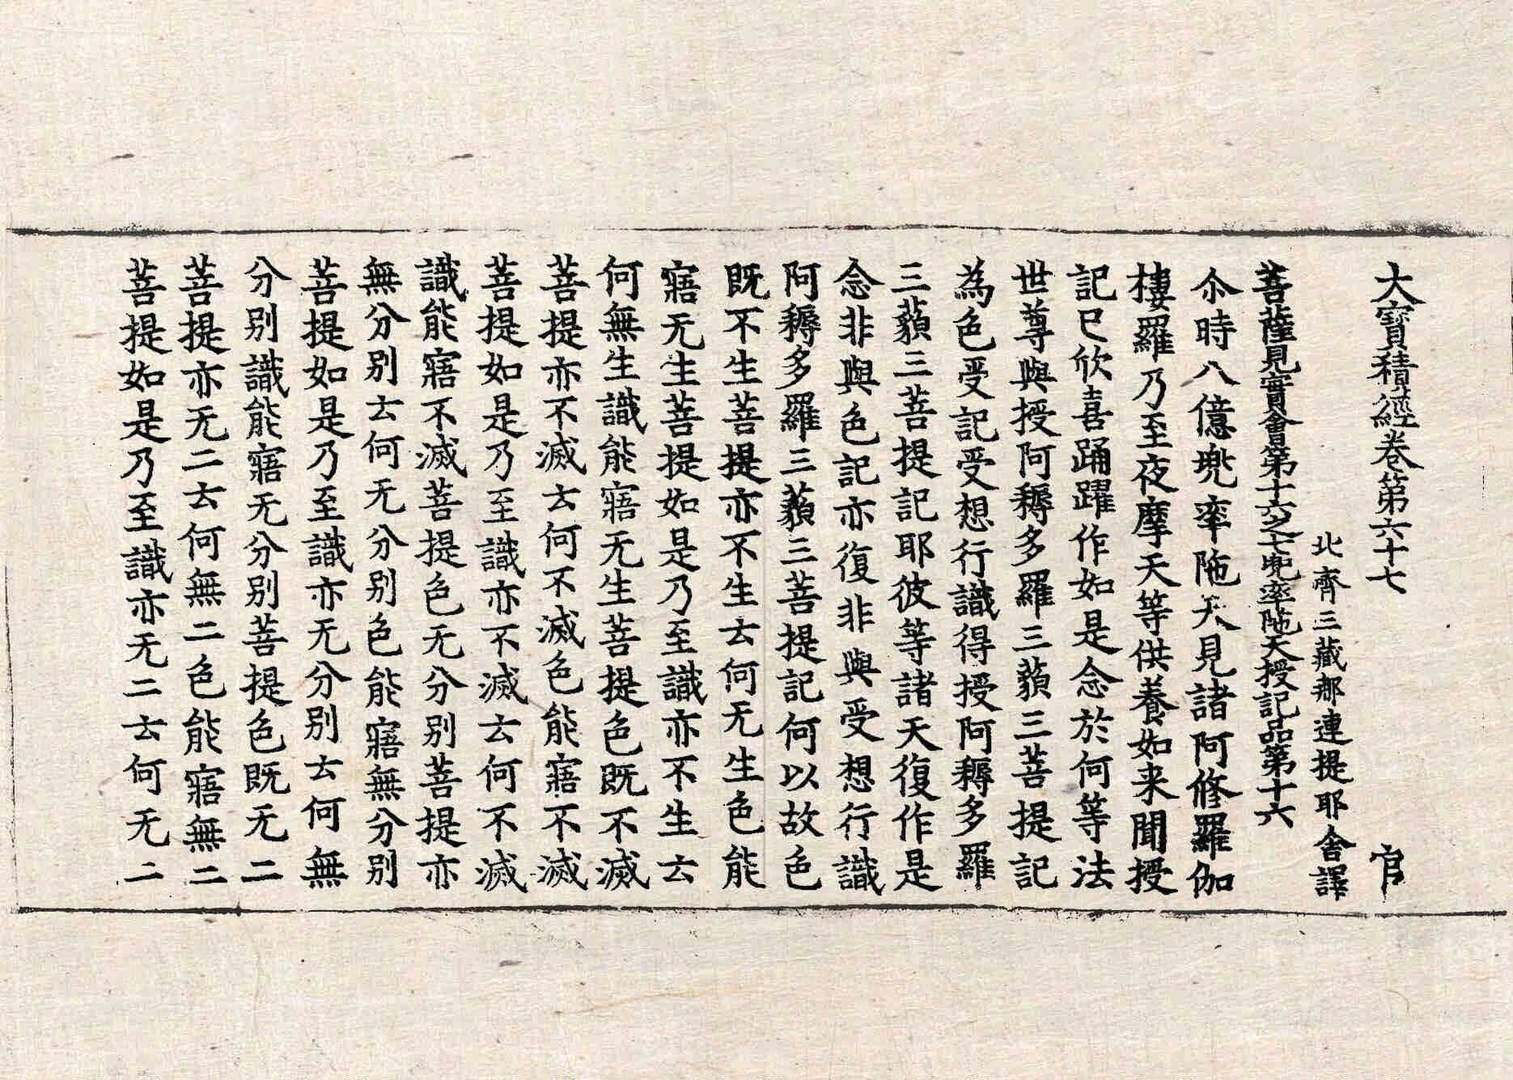 大寶積經卷第六十七 官
北齊三藏那連提耶舍譯
菩薩見實會第十六之七兜率陁天授記品第十六
尒時八億兜率陁天見諸阿修羅伽
樓羅乃至夜摩天等供養如来聞授
記已欣喜踊躍作如是念於何等法
世尊與授阿耨多羅三藐三菩提記
為色受記受想行識得授阿耨多羅
三藐三菩提記耶彼等諸天復作是
念非與色記亦復非與受想行識
阿耨多羅三藐三菩提記何以故色
既不生菩提亦不生云何无生色能
寤无生菩提如是乃至識亦不生云
何無生識能寤无生菩提色既不滅
菩提亦不滅云何不滅色能寤不滅
菩提如是乃至識亦不滅云何不滅
識能寤不滅菩提色无分别菩提亦
無分别云何无分别色能寤無分别
菩提如是乃至識亦无分别云何無
分别識能寤无分别菩提色既无二
菩提亦无二云何無二色能寤無二
菩提如是乃至識亦无二云何无二